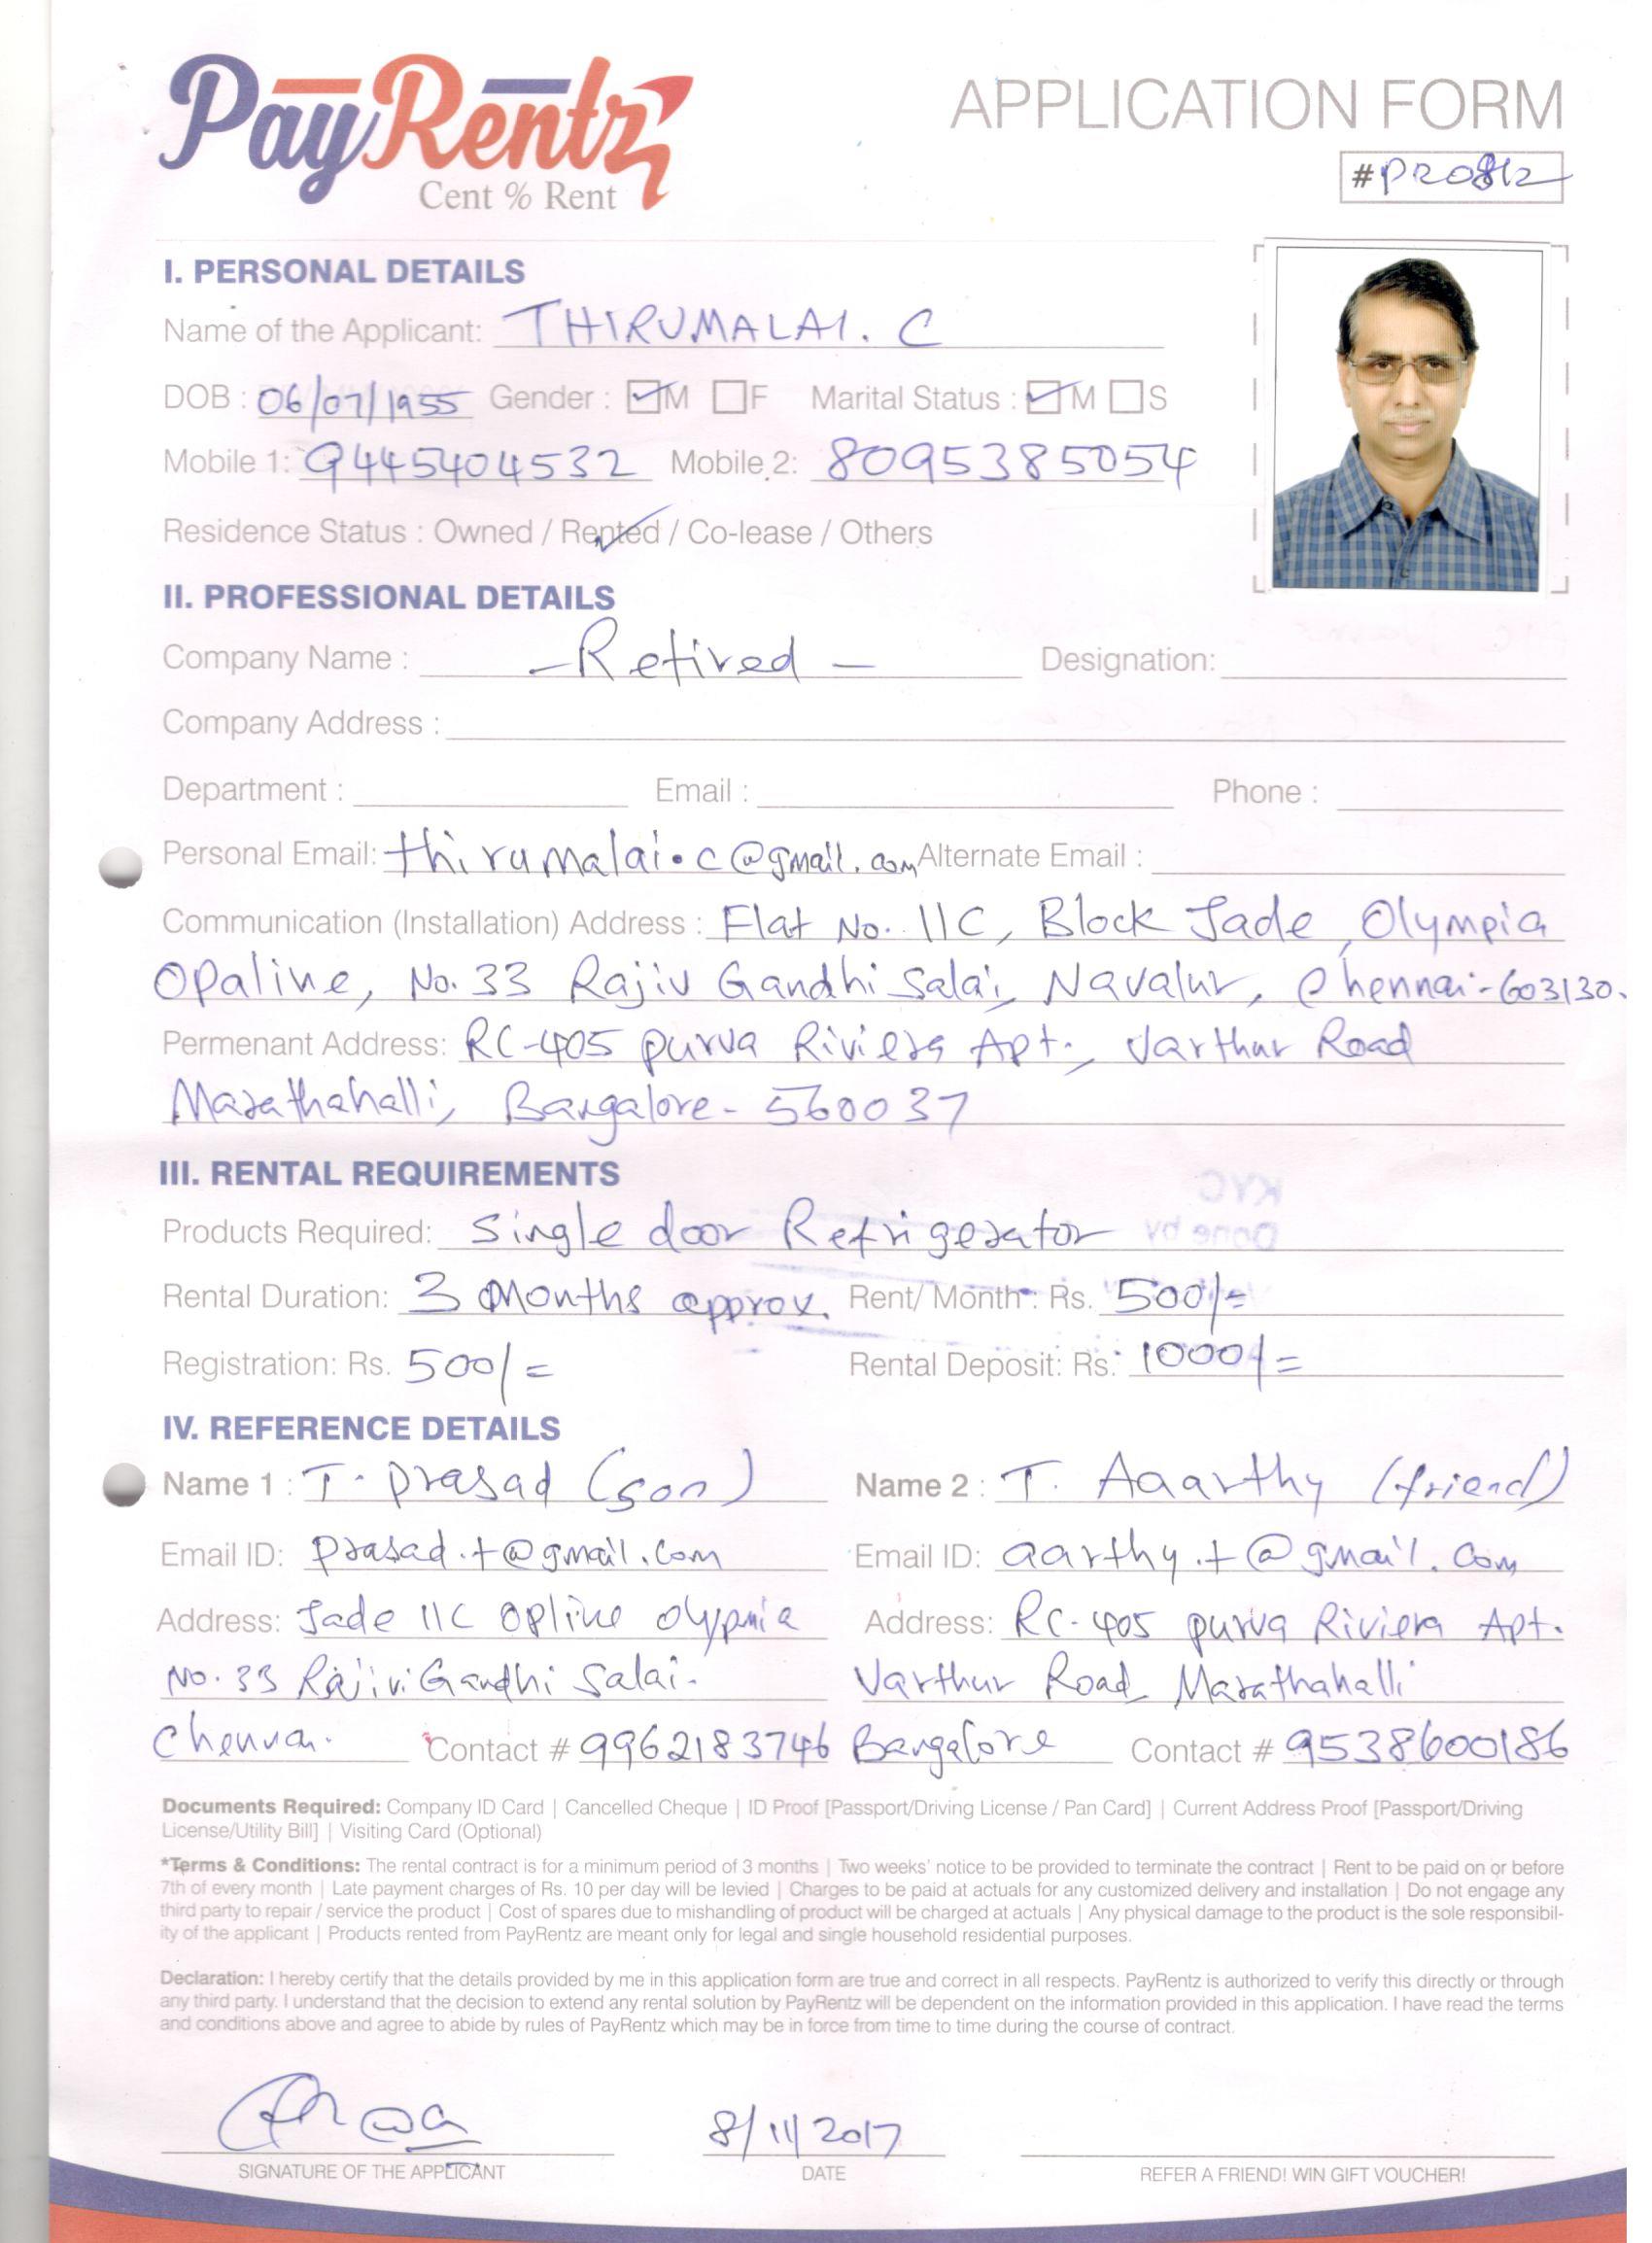 PayRentz
Cent % Rent
APPLICATION FORM
#PR0812
I. PERSONAL DETAILS
Name of the Applicant: THIRUMALAI. C
DOB : 06/07/1955 Gender : M F Marital Status : M S
Mobile 1: 9445404532 Mobile 2: 8095385054
Residence Status : Owned / Rented / Co-lease / Others
II. PROFESSIONAL DETAILS
Company Name : - Retired - Designation:
Company Address :
Department : Email : Phone :
Personal Email: thirumalai.c@gmail.com Alternate Email :
Communication (Installation) Address : Flat No. 11C, Block Jade, Olympia
Opaline, No. 33 Rajiv Gandhi Salai, Navalur, Chennai-603130.
Permenant Address: RC-405 purva Riviera Apt., Varthur Road
Marathahalli, Bangalore - 560037
III. RENTAL REQUIREMENTS
KYC
Products Required: Single door Refrigerator
Done by
Rental Duration: 3 Months approx. Rent/ Month : Rs. 500/=
Registration: Rs. 500/= Rental Deposit: Rs. 1000/=
IV. REFERENCE DETAILS
Name 1 : T. Prasad (son) Name 2 : T. Aaarthy (friend)
Email ID: prasad.t@gmail.com Email ID: aarthy.t@gmail.com
Address: Jade 11C Opline Olypmia Address: RC-405 purva Riviera Apt.
No. 33 Rajiv Gandhi Salai. Varthur Road Marathahalli
Chennai. Contact # 9962183746 Bangalore Contact # 9538600186
Documents Required: Company ID Card | Cancelled Cheque | ID Proof [Passport/Driving License / Pan Card] | Current Address Proof [Passport/Driving
License/Utility Bill] | Visiting Card (Optional)
*Terms & Conditions: The rental contract is for a minimum period of 3 months | Two weeks' notice to be provided to terminate the contract | Rent to be paid on or before
7th of every month | Late payment charges of Rs. 10 per day will be levied | Charges to be paid at actuals for any customized delivery and installation | Do not engage any
third party to repair / service the product | Cost of spares due to mishandling of product will be charged at actuals | Any physical damage to the product is the sole responsibil-
ity of the applicant | Products rented from PayRentz are meant only for legal and single household residential purposes.
Declaration: I hereby certify that the details provided by me in this application form are true and correct in all respects. PayRentz is authorized to verify this directly or through
any third party. I understand that the decision to extend any rental solution by PayRentz will be dependent on the information provided in this application. I have read the terms
and conditions above and agree to abide by rules of PayRentz which may be in force from time to time during the course of contract.
8/11/2017
SIGNATURE OF THE APPLICANT DATE REFER A FRIEND! WIN GIFT VOUCHER!